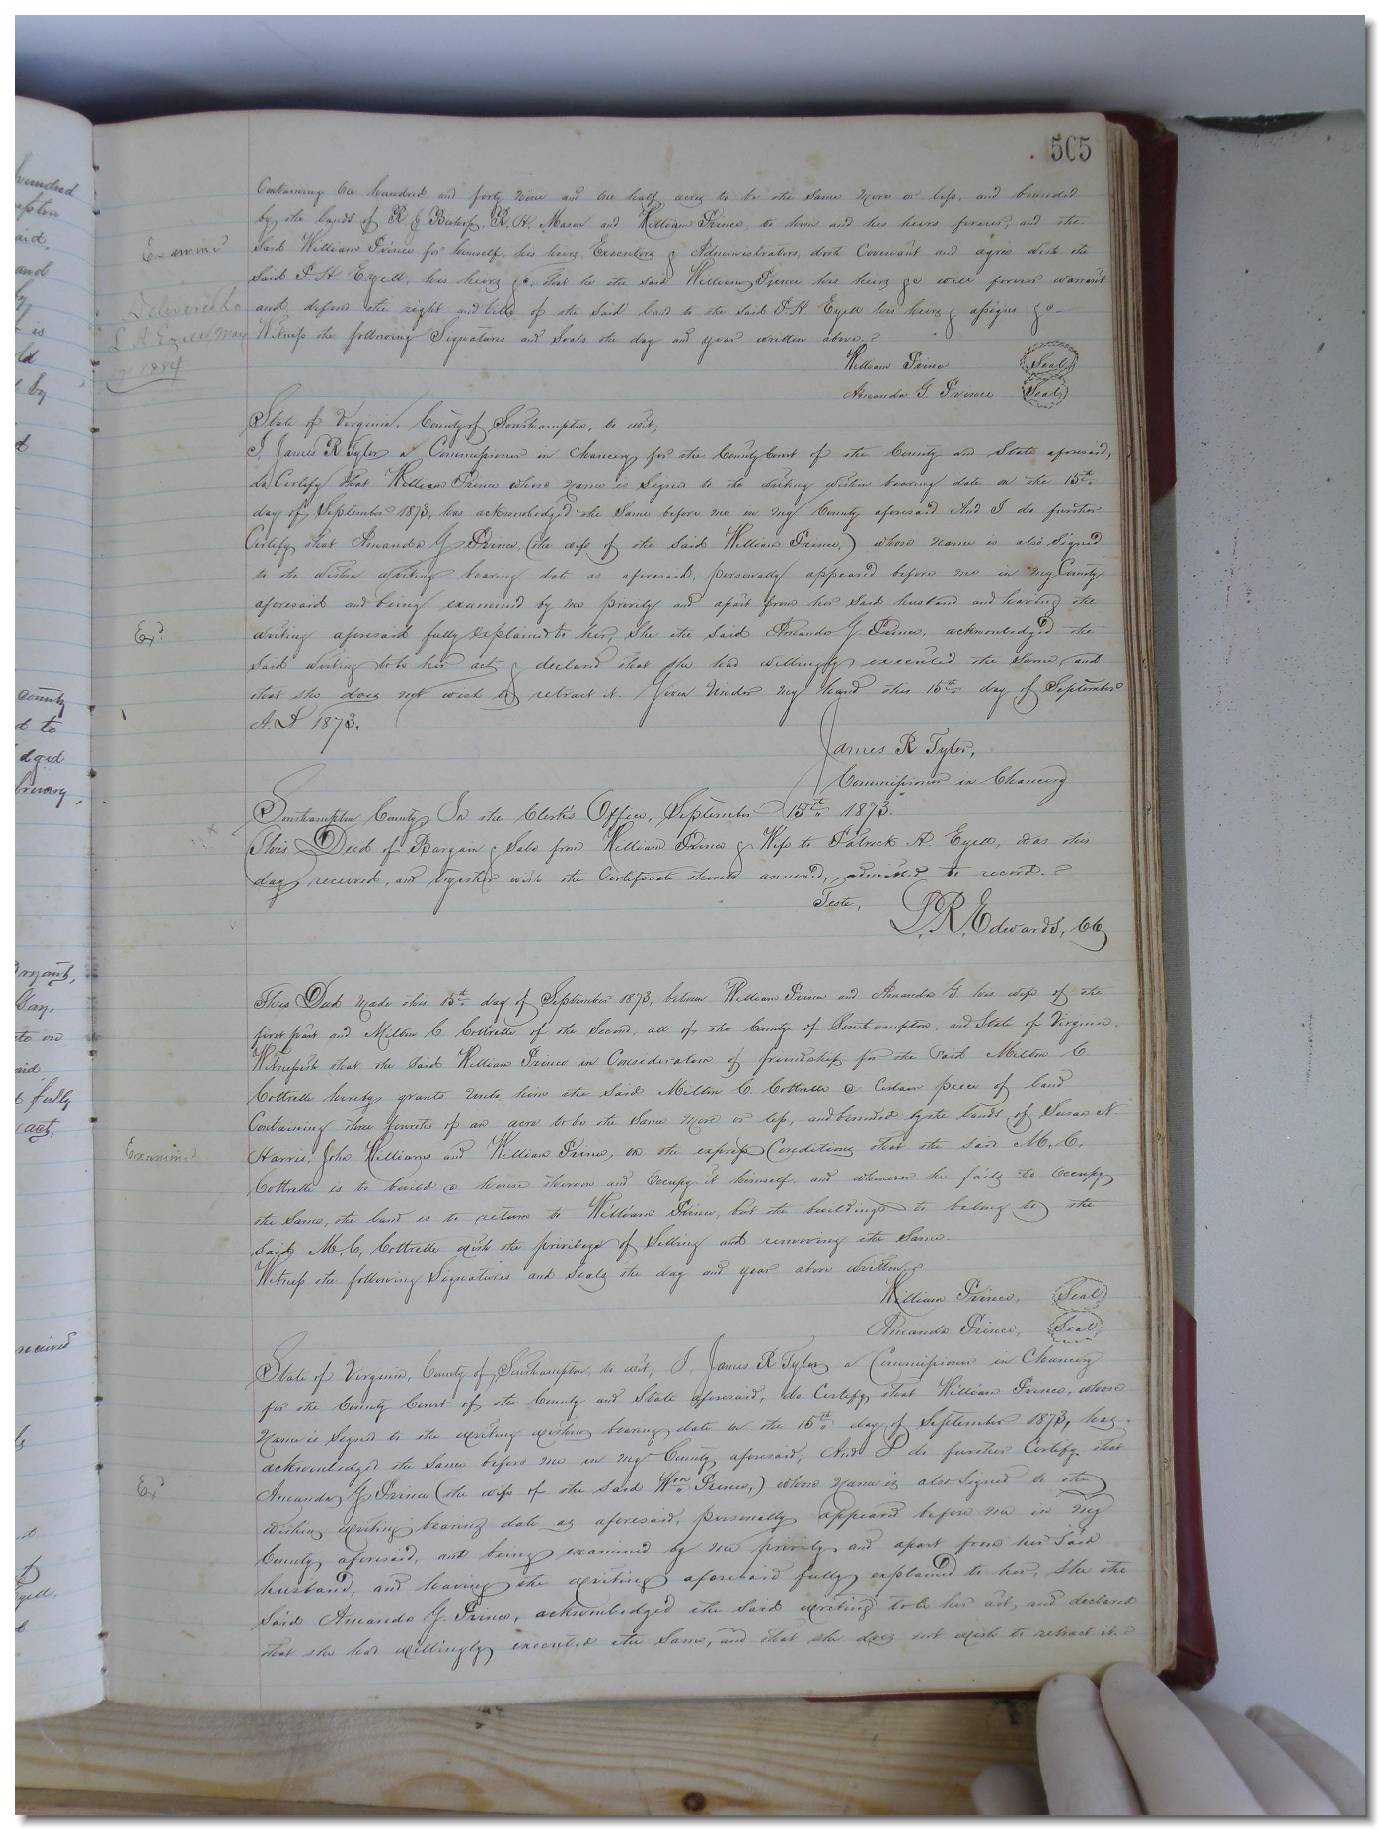 505
Containing One hundred and forty Nine and One half acres to be the same More or less, and bounded
by the lands of R J Bishop, R. H. Mason and William Prince, to him and his heirs forever, and the
Said William Prince for himself, his heirs, Executors & Administrators, doth Covenant and agree with the
Said P. H Ezell, his heirs &c. that he the said William Prince his heirs &c will forever warrant
and defend the right and title of the Said land to the said P. H Ezell his heirs & assigns &c
Witness the following Signatures and Seals the day and year written above.
Examined
Delivered to
Ezell May
1884
William Prince Seal
Amanda G. Prince Seal
State of Virginia, County of Southampton, to wit,
I, James R Tyler a Commissioner in Chancery for the County Court of the County and State aforesaid,
do Certify that William Prince whose Name is Signed to the writing within bearing date on the 15th
day of September 1873, has acknowledged the Same before me in my County aforesaid And I do further
Certify that Amanda G Prince (the wife of the Said William Prince,) whose name is also Signed
to the within writing bearing date as aforesaid, personally appeared before me in my County
aforesaid and being examined by me privily and apart from her Said husband and having the
Exd
writing aforesaid fully explained to her, She the Said Amanda G Prince, acknowledged the
Said writing to be her act & declared that She had willingly executed the Same, and
that she does not wish to retract it. Given Under My hand this 15th day of September
A.D 1873.
James R Tyler,
Commissioner in Chancery
Southampton County, In the Clerk's Office, September 15th 1873.
This Deed of Bargain & Sale from William Prince & Wife to Patrick H. Ezell, was this
day received, and together with the Certificate thereto annexed, admitted to record.
Teste, L. R. Edwards, CC
This Deed Made this 15th day of September 1873, between William Prince and Amanda G. his wife of the
first part and Milton C Cottrelle of the Second, all of the County of Southampton, and State of Virginia.
Witnesseth that the Said William Prince in Consideration of friendship for the Said Milton C
Cottrelle hereby grants Unto him the Said Milton C. Cottrelle a Certain piece of land
Containing three fourths of an acre to be the Same More or less, and bounded by the lands of Susan N
Examined
Harris, John Williams and William Prince, on the express Conditions that the said M. C.
Cottrelle is to build a house thereon and Occupy it himself, and whenever he fails to Occupy
the Same, the land is to return to William Prince, but the buildings to belong to the
Said M. C. Cottrelle with the privilege of Selling and removing the Same.
Witness the following Signatures and Seals the day and year above written.
William Prince, Seal
Amanda Prince, Seal
State of Virginia, County of Southampton, to wit, I, James R Tyler a Commissioner in Chancery
for the County Court of the County and State aforesaid, do Certify that William Prince, whose
Name is Signed to the writing within bearing date on the 15th day of September 1873, has
acknowledged the Same before me in my County aforesaid, And I do further Certify that
Exd
Amanda G Prince (the wife of the Said Wm Prince,) whose Name is also signed to the
within writing bearing date as aforesaid, personally appeared before me in my
County aforesaid, and being examined by me privily and apart from her Said
husband, and having the writing aforesaid fully explained to her, She the
Said Amanda G. Prince, acknowledged the Said writing to be her act, and declared
that she had willingly executed the Same, and that she does not wish to retract it.